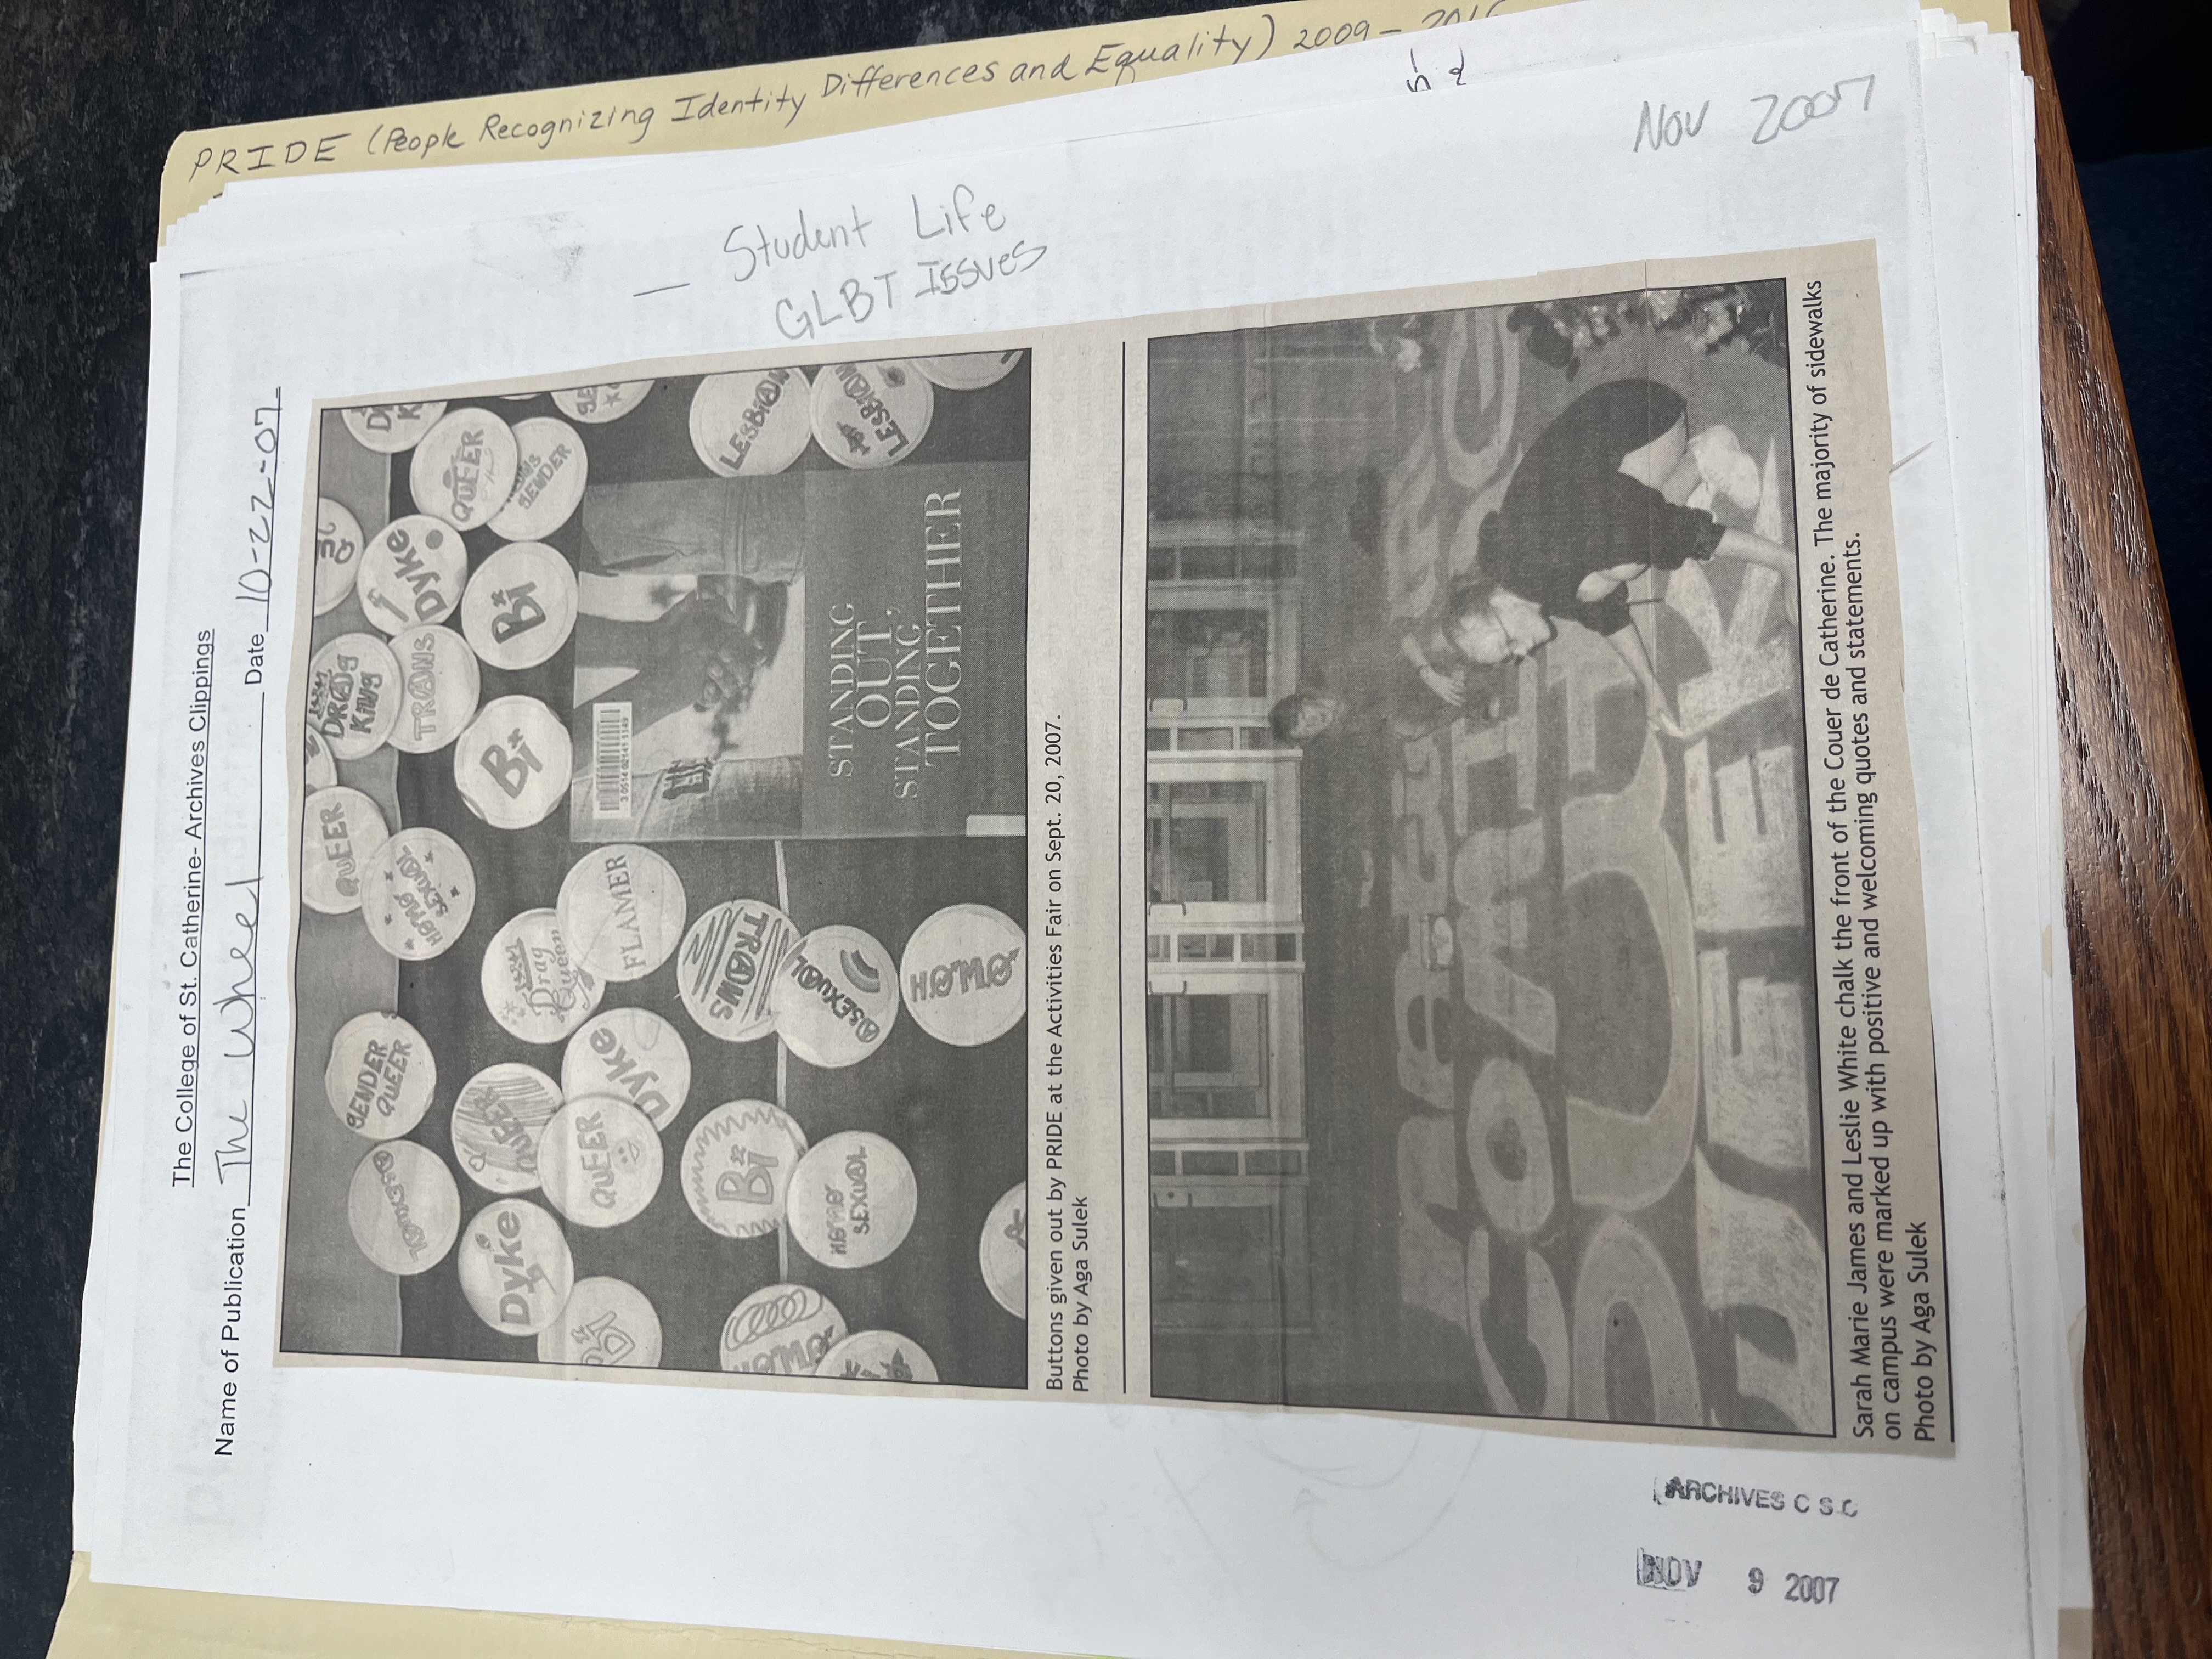 The College of St. Catherine- Archives Clippings
Name of Publication The Wheel Date 10-22-07
ASEXUAL
GENDER
QUEER
QUEER
DRAG
KING
HOMO
SEXUAL
TRANS
Dyke
QUEER
Dyke
QUEER
Drag
Queen
Bi
Bi
TRANS
GENDER
Bi
QUEER
Dyke
FLAMER
3 0514 02141 1149
Bi
TRANS
LESBIAN
HOMO
HOMO
SEXUAL
ASEXUAL
LESBIAN
HOMO
STANDING
OUT,
STANDING
TOGETHER
Buttons given out by PRIDE at the Activities Fair on Sept. 20, 2007.
Photo by Aga Sulek
COMING
OUT
WEEK
Sarah Marie James and Leslie White chalk the front of the Couer de Catherine. The majority of sidewalks
on campus were marked up with positive and welcoming quotes and statements.
Photo by Aga Sulek
— Student Life
GLBT Issues
PRIDE (People Recognizing Identity Differences and Equality) 2009-
Nov 2007
ARCHIVES C S C
NOV 9 2007